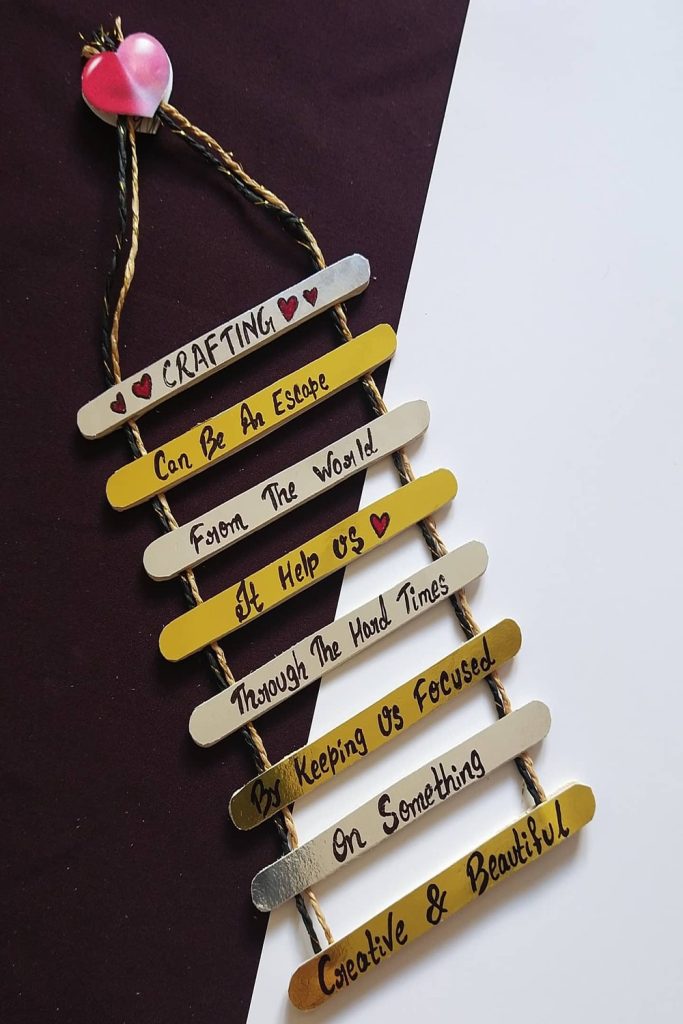 CRAFTING
Can Be An Escape
From The World
It Help Us
Through The Hard Times
By Keeping Us Focused
On Something
Creative & Beautiful